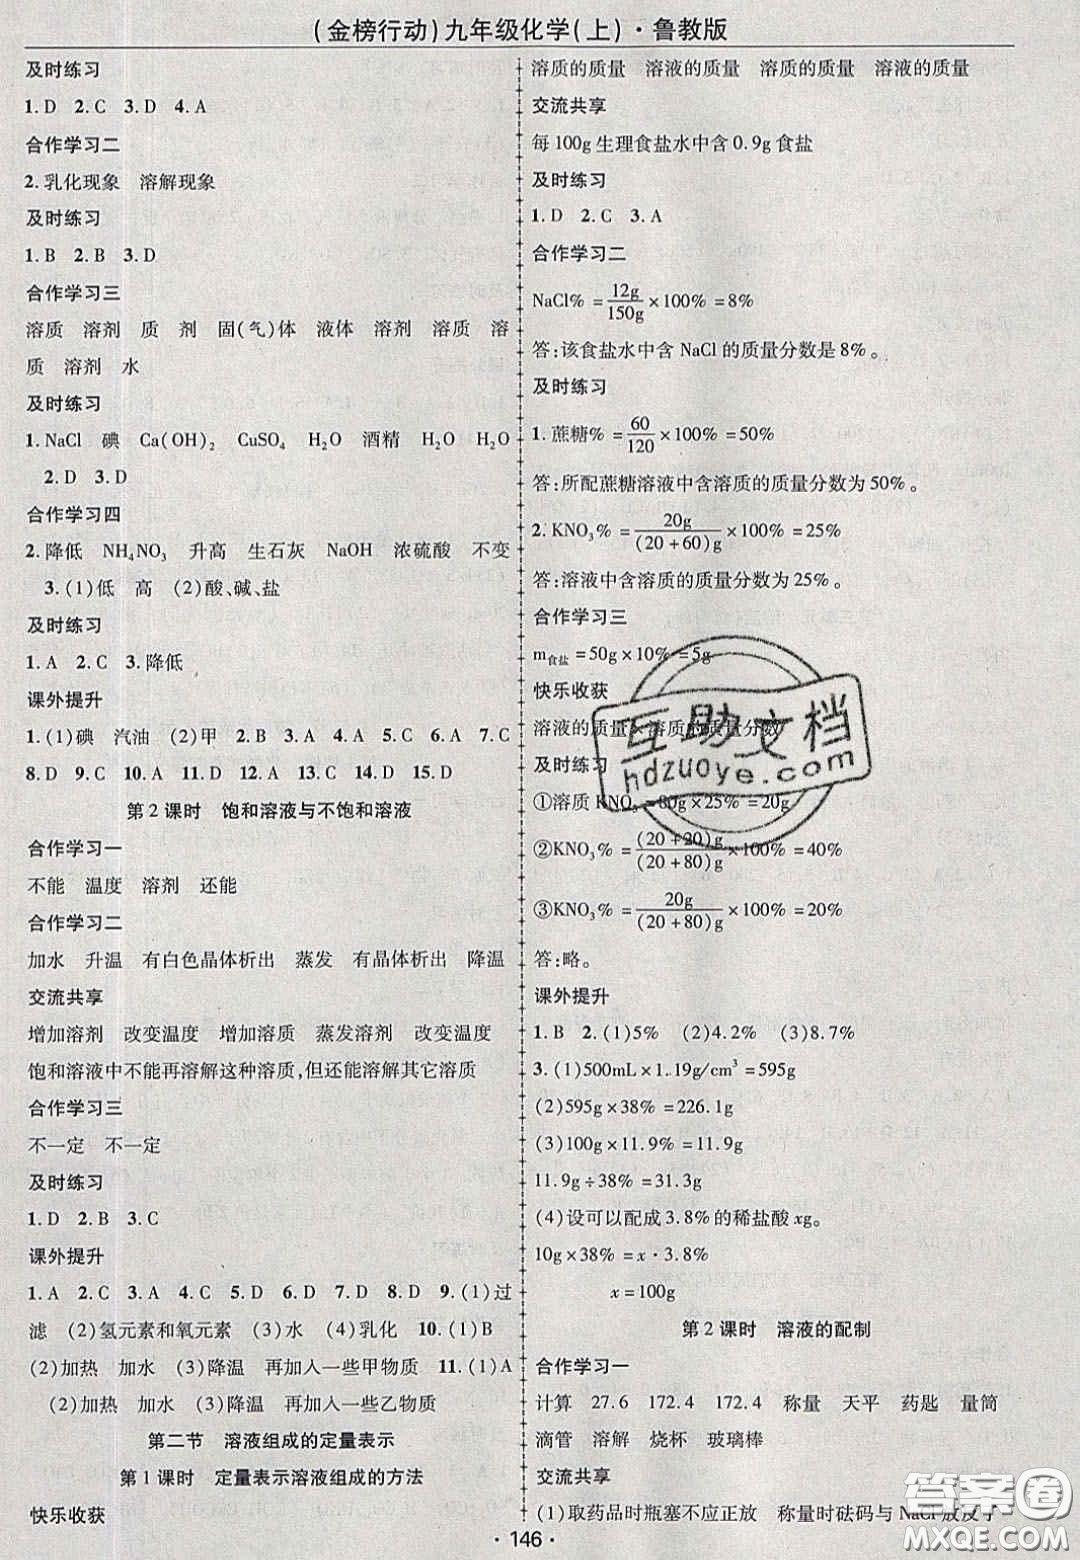 (金榜行动)九年级化学(上)·鲁教版
及时练习
1.D 2.C 3.D 4.A
合作学习二
2.乳化现象 溶解现象
及时练习
1.B 2.B 3.D
合作学习三
溶质 溶剂 质 剂 固(气)体 液体 溶剂 溶质 溶
质 溶剂 水
及时练习
1.NaCl 碘 Ca(OH)₂ CuSO₄ H₂O 酒精 H₂O H₂O
2.D 3.D
合作学习四
2.降低 NH₄NO₃ 升高 生石灰 NaOH 浓硫酸 不变
3.(1)低 高 (2)酸、碱、盐
及时练习
1.A 2.C 3.降低
课外提升
1.(1)碘 汽油 (2)甲 2.B 3.A 4.A 5.C 6.A 7.C
8.D 9.C 10.A 11.D 12.A 13.C 14.D 15.D
第2课时 饱和溶液与不饱和溶液
合作学习一
不能 温度 溶剂 还能
合作学习二
加水 升温 有白色晶体析出 蒸发 有晶体析出 降温
交流共享
增加溶剂 改变温度 增加溶质 蒸发溶剂 改变温度
饱和溶液中不能再溶解这种溶质,但还能溶解其它溶质
合作学习三
不一定 不一定
及时练习
1.D 2.B 3.C
课外提升
1.A 2.C 3.C 4.C 5.D 6.D 7.D 8.D 9.(1)过
滤 (2)氢元素和氧元素 (3)水 (4)乳化 10.(1)B
(2)加热 加水 (3)降温 再加入一些甲物质 11.(1)A
(2)加热 加水 (3)降温 再加入一些乙物质
第二节 溶液组成的定量表示
第1课时 定量表示溶液组成的方法
快乐收获
溶质的质量 溶液的质量 溶质的质量 溶液的质量
交流共享
每100g生理食盐水中含0.9g食盐
及时练习
1.D 2.C 3.A
合作学习二
NaCl% = 12g/150g × 100% = 8%
答:该食盐水中含NaCl的质量分数是8%。
及时练习
1.蔗糖% = 60/120 × 100% = 50%
答:所配蔗糖溶液中含溶质的质量分数为50%。
2.KNO₃% = 20g/(20+60)g × 100% = 25%
答:溶液中含溶质的质量分数为25%。
合作学习三
m食盐 = 50g × 10% = 5g
快乐收获
溶液的质量×溶质的质量分数
及时练习
①溶质KNO₃ = 80g × 25% = 20g
②KNO₃% = (20+20)g/(20+80)g × 100% = 40%
③KNO₃% = 20g/(20+80)g × 100% = 20%
答:略。
课外提升
1.B 2.(1)5% (2)4.2% (3)8.7%
3.(1)500mL × 1.19g/cm³ = 595g
(2)595g × 38% = 226.1g
(3)100g × 11.9% = 11.9g
11.9g ÷ 38% = 31.3g
(4)设可以配成3.8%的稀盐酸xg。
10g × 38% = x · 3.8%
x = 100g
第2课时 溶液的配制
合作学习一
计算 27.6 172.4 172.4 称量 天平 药匙 量筒
滴管 溶解 烧杯 玻璃棒
交流共享
(1)取药品时瓶塞不应正放 称量时砝码与NaCl放反了
·146·
互助文档
hdzuoye.com
答案圈
MXQE.COM